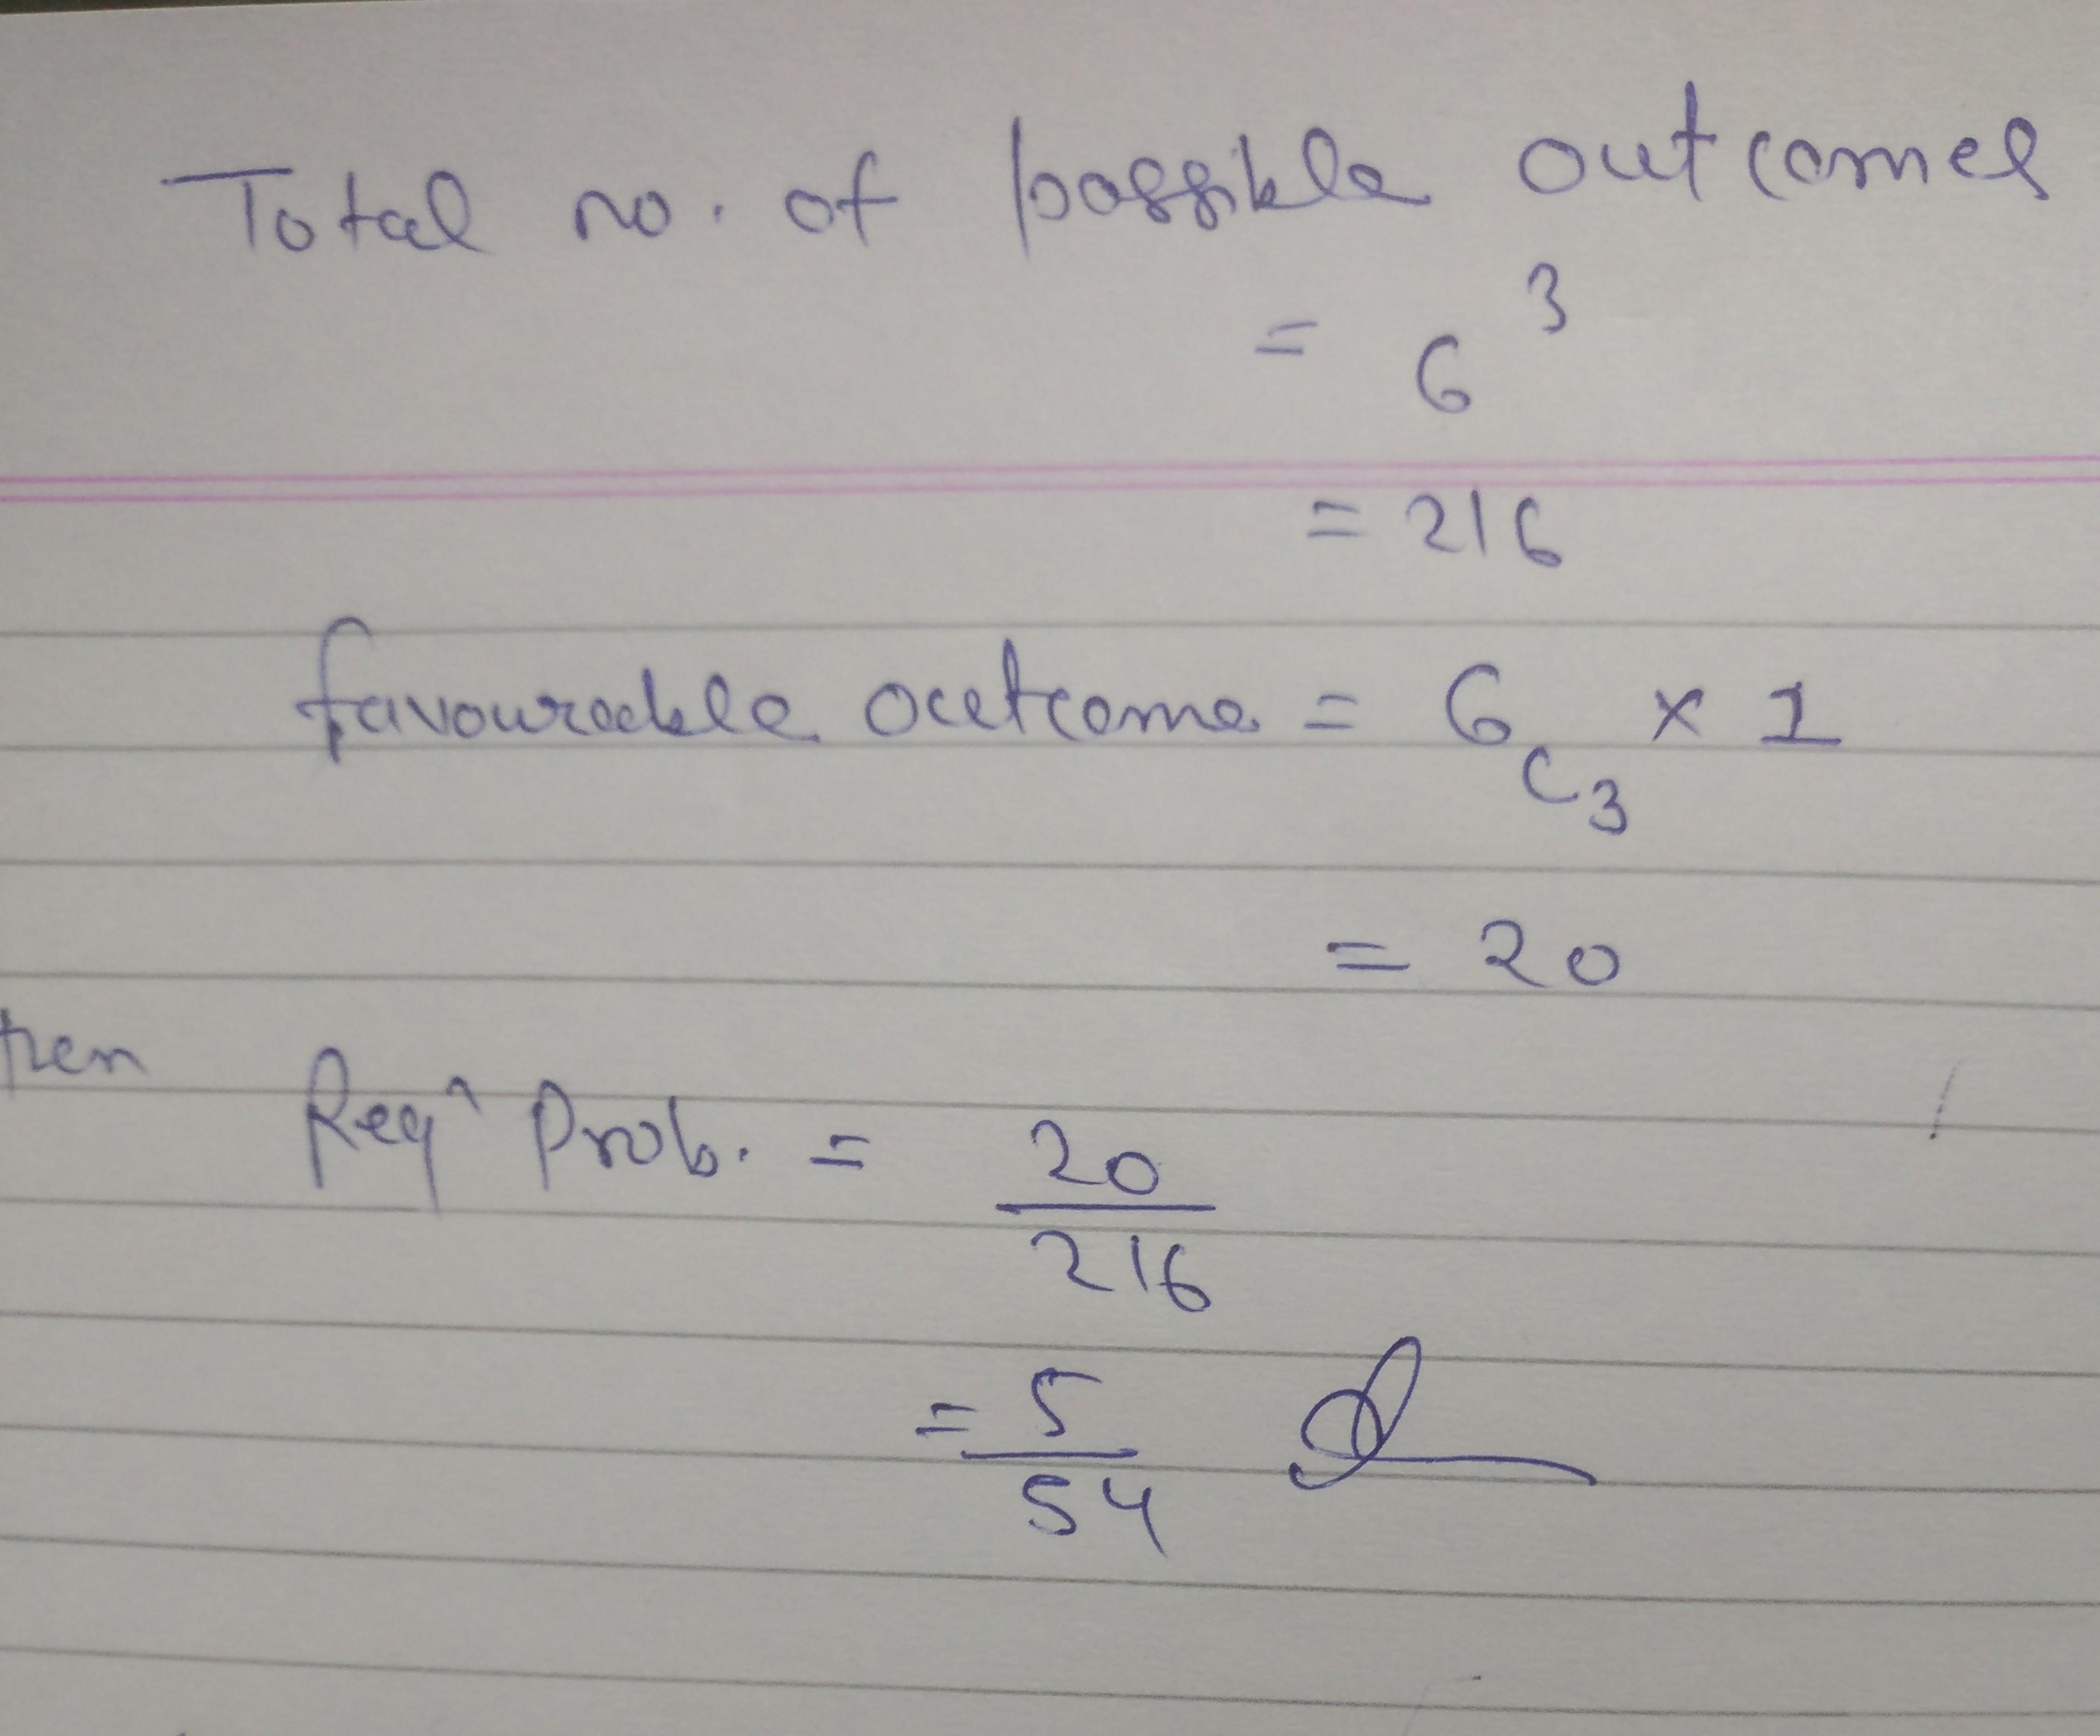 Total no. of possible outcomes
= 6³
= 216
favourable outcome = 6C₃ × 1
= 20
then Reqⁿ Prob. = 20/216
= 5/54